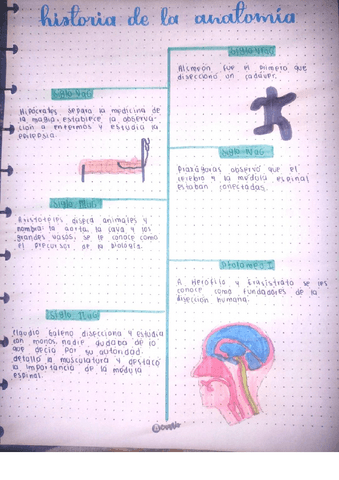 historia de la anatomía
Alcmeón fue el primero que
diseccionó un cadáver.
Hipócrates separa la medicina de
la magia, establece la observa-
ción a enfermos y estudia la
epilepsia.
Praxágoras observó que el
cerebro y la médula espinal
estaban conectadas.
Aristóteles diseca animales y
nombra: la aorta, la cava y los
grandes vasos, se le conoce como
el precursor de la biología.
Ptolomeo I
A Herofilo y Erasistrato se les
conoce como fundadores de la
disección humana.
Claudio Galeno disecciona y estudia
con monos, nadie dudaba de lo
que decía por su autoridad.
detalló la musculatura y destacó
la importancia de la médula
espinal.